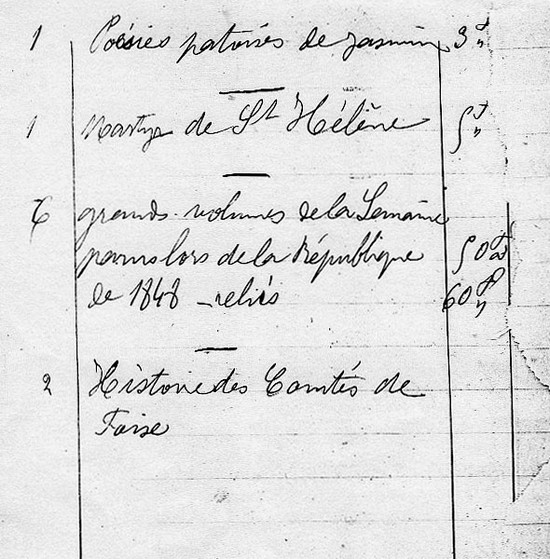 1 Poésies patoises de Jasmin 3 f "
1 Martyr de St Hélène 5 f "
6 grands volumes de la Semaine
parus lors de la République 50 f
de 1848 reliés 60 f "
2 Histoire des Comtés de
Foix